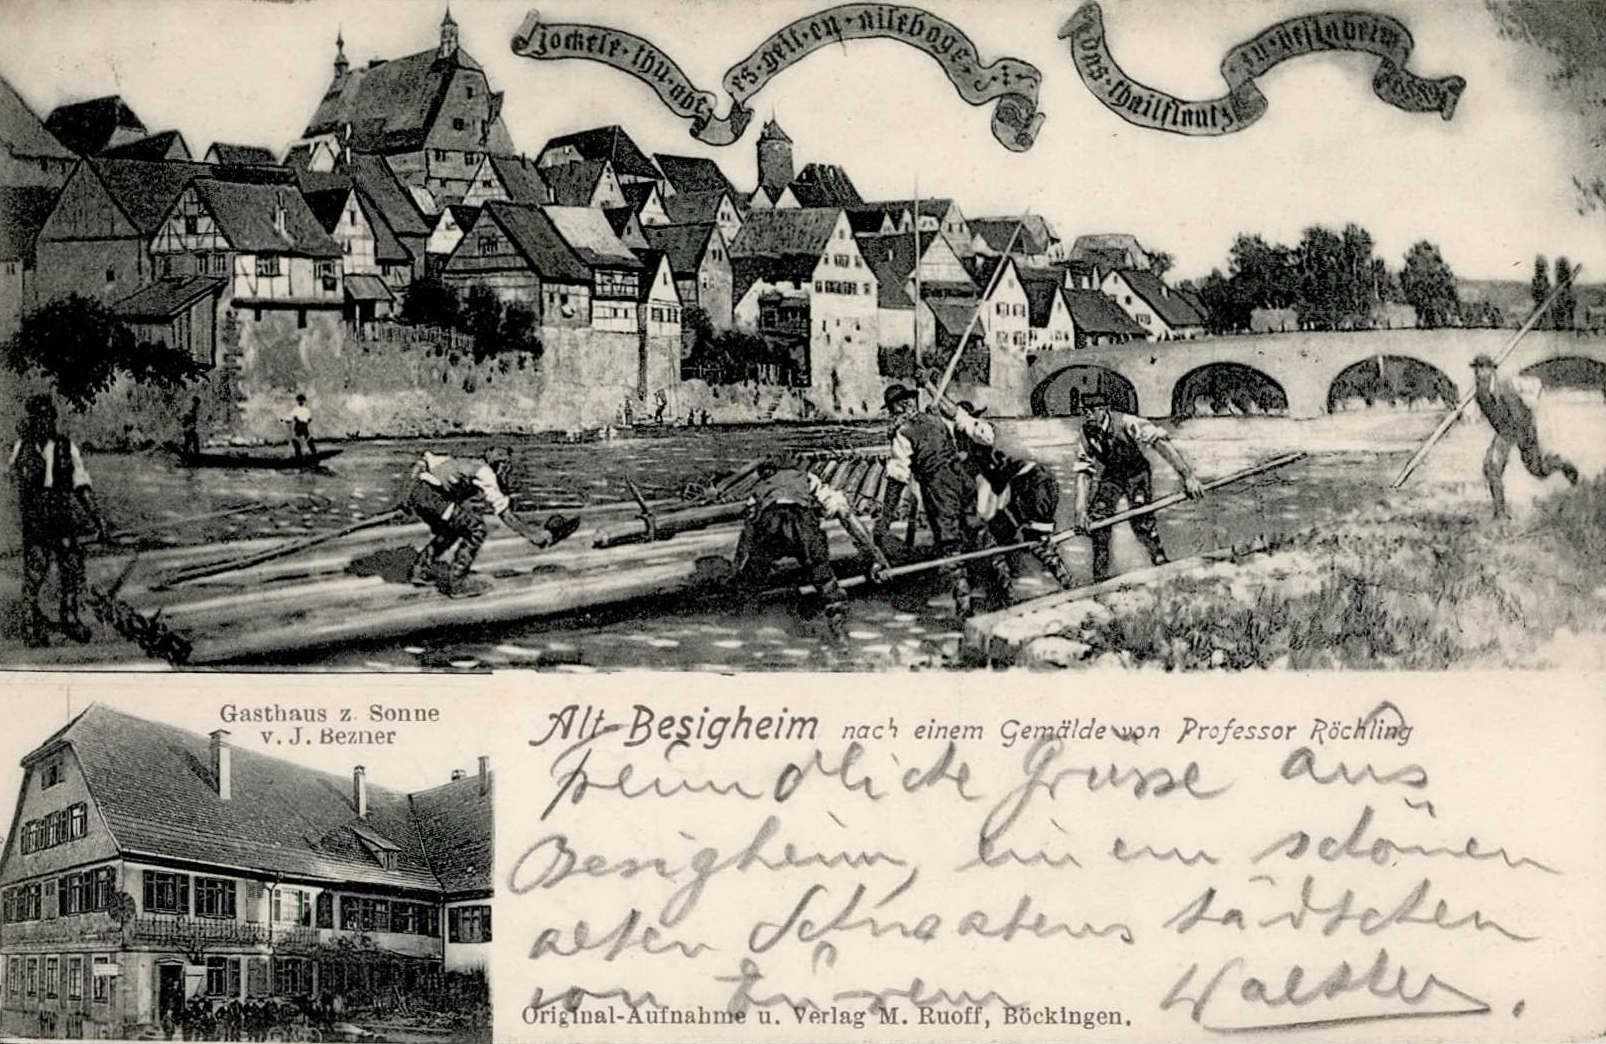 jockele · thu · abc
es · geit · en · aileboge
das · theilstautz
en · besigheim
Gasthaus z. Sonne
v. J. Bezner
Alt-Besigheim nach einem Gemälde von Professor Röchling
freundliche Grüsse aus
Besigheim, einem schönen
alten Schwabenstädtchen
von Eurem Walther.
Original-Aufnahme u. Verlag M. Ruoff, Böckingen.